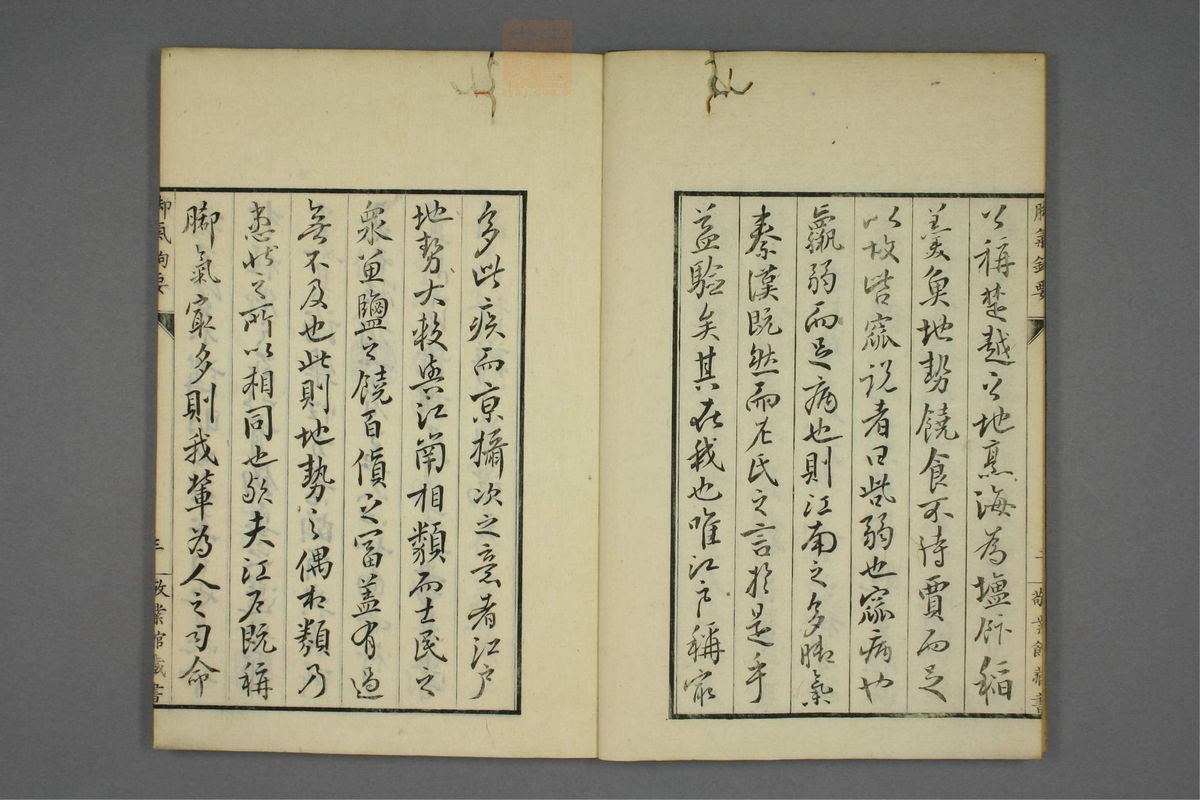 脚氣鉤要 二 敬業館藏書
以稱楚越之地烹海為塩飰稲
羹魚地勢饒食不待賈而足
以故呰窳説者曰呰弱也窳病也
羸弱而足病也則江南之多脚氣
秦漢既然而左氏之言於是乎
益驗矣其在我也唯江戸稱最
多此疾而京攝次之意者江戸
地勢大較與江南相類而士民之
衆魚鹽之饒百貨之富蓋有過
無不及也此則地勢之偶相類乃
患状之所以相同也歟夫江戸既稱
脚氣最多則我輩為人之司命
脚氣鉤要 三 敬業館藏書